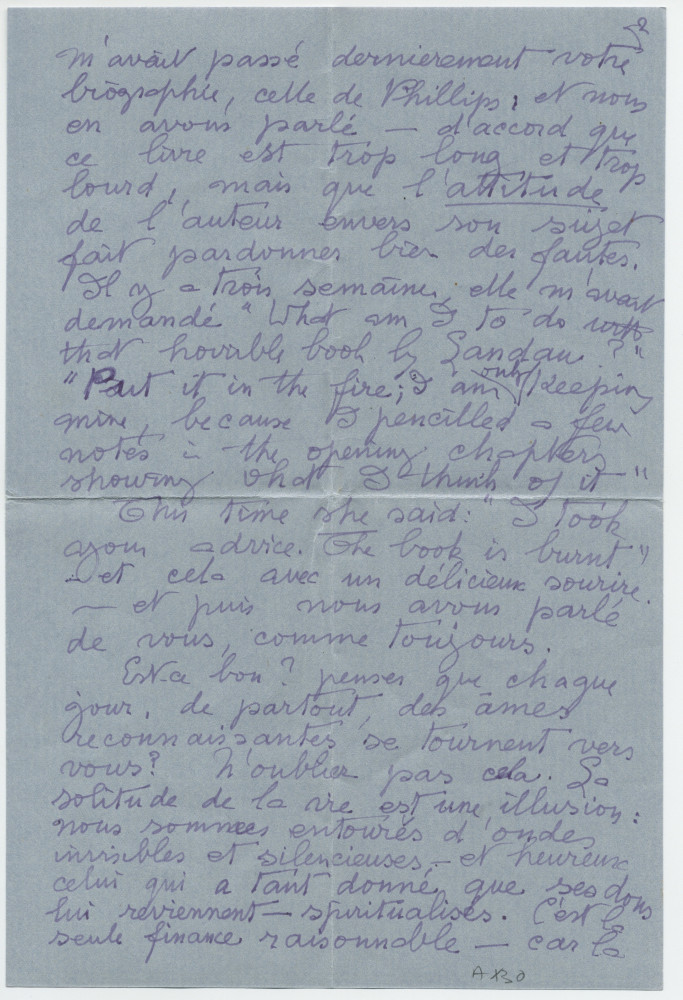 2
m'avait passé dernierement votre
biographie, celle de Phillips; et nous
en avons parlé — d'accord que
ce livre est trop long et trop
lourd, mais que l'attitude
de l'auteur envers son sujet
fait pardonner bien des fautes.
Il y a trois semaines, elle m'avait
demandé "What am I to do with
that horrible book by Landau?"
"Put it in the fire; I am only keeping
mine, because I pencilled a few
notes in the opening chapters
showing what I think of it"
This time she said: "I took
your advice. The book is burnt"
.. et cela avec un délicieux sourire.
— et puis nous avons parlé
de vous, comme toujours.
Est-ce bon? penser que chaque
jour, de partout, des âmes
reconnaissantes se tournent vers
vous? N'oubliez pas cela. La
solitude de la vie est une illusion:
nous sommes entourés d'ondes
invisibles et silencieuses — et heureux
celui qui a tant donné, que ses dons
lui reviennent — spiritualisés. C'est la
seule finance raisonnable — car la